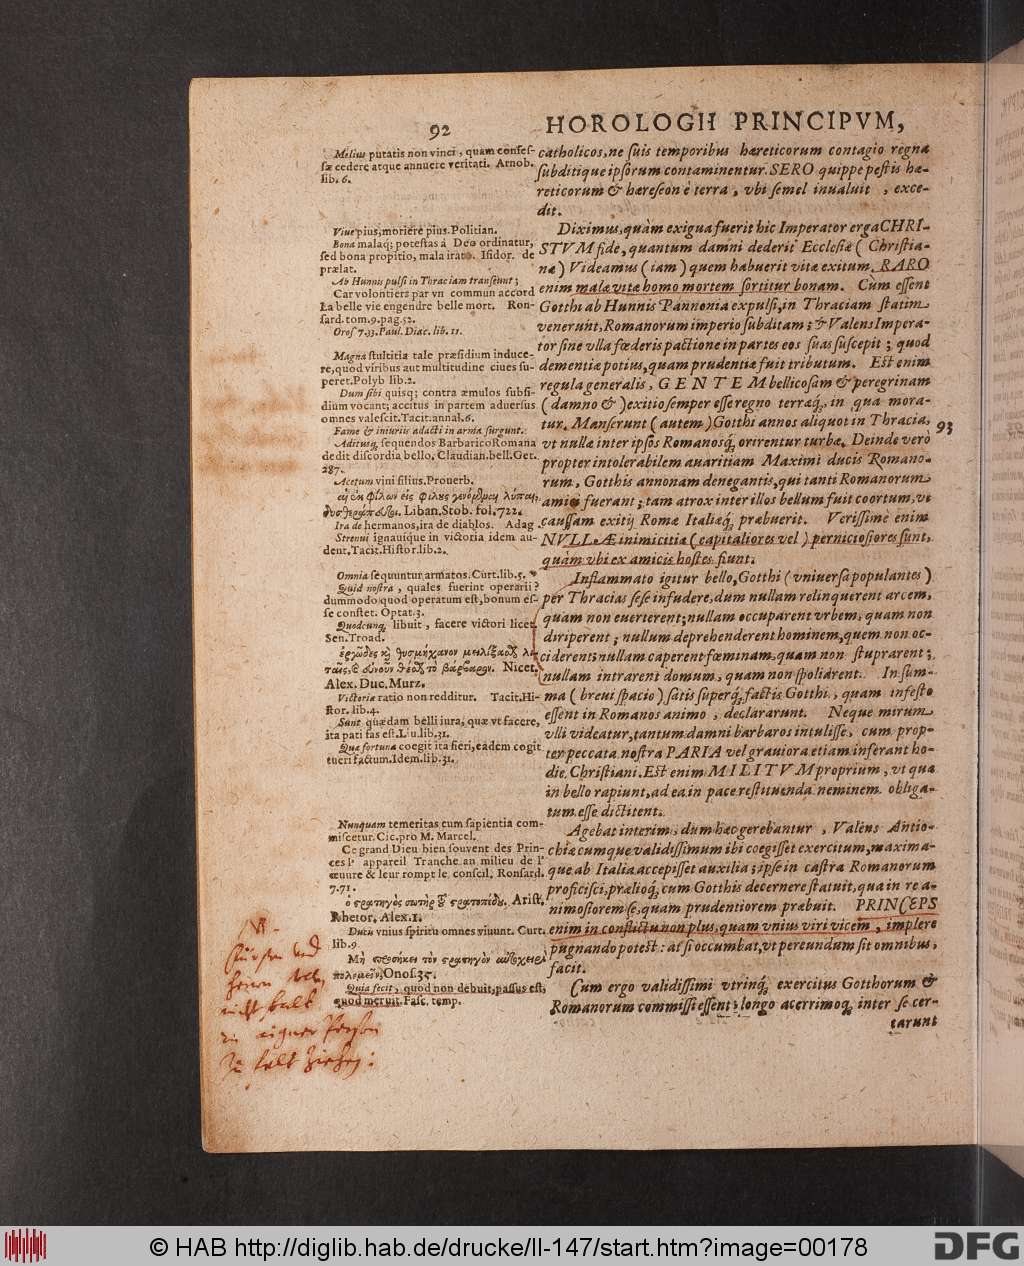 92
HOROLOGII PRINCIPVM,
Melius putatis non vinci, quam confes-
sæ cedere atque annuere veritati. Arnob.
lib. 6.
Viue pius, moriere pius. Politian.
Bona malaq; potestas à Deo ordinatur,
sed bona propitio, mala irato. Isidor. de
prælat.
Ab Hunnis pulsi in Thraciam transeunt;
Car volontiers par vn commun accord
La belle vie engendre belle mort. Ron-
sard. tom. 9. pag. 52.
Oros 7.33. Paul. Diac. lib. 11.
Magna stultitia tale præsidium induce-
re, quod viribus aut multitudine ciues su-
peret. Polyb lib. 2.
Dum sibi quisq; contra æmulos subsi-
dium vocant; accitus in partem aduersus
omnes valescit. Tacit. annal. 6.
Fame & iniuriis adacti in arma surgunt.
Aditusq, sequendos Barbarico Romana
dedit discordia bello. Claudian. bell. Get.
287.
Acetum vini filius. Prouerb.
Liban. Stob. fol. 722.
Ira de hermanos, ira de diablos. Adag
Strenui ignauique in victoria idem au-
dent, Tacit. Histor. lib. 2.
Omnia sequuntur armatos. Curt. lib. 5.
Quid nostra, quales fuerint operarii?
dummodo quod operatum est, bonum es-
se constet. Optat. 3.
Quodcunq, libuit, facere victori licet.
Sen. Troad.
Nicet.
Alex. Duc. Murz.
Victoriæ ratio non redditur. Tacit. Hi-
stor. lib. 4.
Sunt quædam belli iura, quæ vt facere,
ita pati fas est. Liu. lib. 31.
Quæ fortuna coegit ita fieri, eadem cogit
tueri factum. Idem. lib. 31.
Nunquam temeritas cum sapientia com-
miscetur. Cic. pro M. Marcel.
Ce grand Dieu bien souvent des Prin-
ces l' appareil Tranche an milieu de l'
œuure & leur rompt le conseil, Ronsard.
7.71.
ὁ στρατηγὸς σωτὴρ τοῦ στρατοπέδου. Arist.
Rhetor. Alex. 1.
Ducis vnius spiritu omnes viuunt. Curt.
lib. 9
Μὴ προσήκει τὸν στρατηγὸν αὐτοχειρὶ
πολεμεῖν, Onos. 35.
Quia fecit, quod non debuit, passus est,
quod meruit. Fasc. temp.
catholicos, ne suis temporibus hæreticorum contagio regna
subditique ipsorum contaminentur. SERO quippe pestis hæ-
reticorum & hæreseon è terra, vbi semel inualuit, exce-
dit.
Diximus, quàm exigua fuerit hic Imperator erga CHRI-
STVM fide, quantum damni dederit Ecclesiæ (Christia-
næ) Videamus (iam) quem habuerit vitæ exitum. RARO
enim malæ vitæ homo mortem sortitur bonam. Cùm essent
Gotthi ab Hunnis Pannonia expulsi, in Thraciam statim
venerunt, Romanorum imperio subditam; & Valens Impera-
tor sine vlla fœderis pactione in partes eos suas suscepit; quod
dementiæ potius, quam prudentiæ fuit tributum. Est enim
regula generalis, GENTEM bellicosam & peregrinam
(damno &) exitio semper esse regno terræq́, in qua mora-
tur. Manserunt (autem) Gotthi annos aliquot in Thracia,
vt nullæ inter ipsos Romanosq́, orirentur turbæ. Deinde verò
93
propter intolerabilem auaritiam Maximi ducis Romano-
rum, Gotthis annonam denegantis, qui tanti Romanorum
amici fuerant; tam atrox inter illos bellum fuit coortum, vt
caussam exitij Romæ Italiæq́, præbuerit. Verissimè enim
NVLLÆ inimicitiæ (capitaliores vel) perniciosiores sunt,
quàm vbi ex amicis hostes fiunt.
Inflammato igitur bello, Gotthi (vniuersa populantes)
per Thracias sese infudere, dum nullam relinquerent arcem,
quam non euerterent; nullam occuparent vrbem, quam non
diriperent; nullum deprehenderent hominem, quem non oc-
ciderent; nullam caperent fœminam, quam non stuprarent;
nullam intrarent domum, quam non spoliarent. In sum-
ma (breui spacio) satis superq́, factis Gotthi, quam infesto
essent in Romanos animo, declararunt. Neque mirum
vlli videatur, tantum damni barbaros intulisse, cum prop-
ter peccata nostra PARIA vel grauiora etiam inferant ho-
die Christiani. Est enim MILITVM proprium, vt quæ
in bello rapiunt, ad ea in pace restituenda neminem obliga-
tum esse dictitent.
Agebat interim, dum hæc gerebantur, Valens Antio-
chiæ cumque validissimum ibi coegisset exercitum, maxima-
que ab Italia accepisset auxilia; ipse in castra Romanorum
proficisci, prælioq́, cum Gotthis decernere statuit, qua in re a-
nimosiorem se, quam prudentiorem præbuit. PRINCEPS
enim in conflictu non plus, quam vnius viri vicem, implere
pugnando potest: at si occumbat, vt pereundum sit omnibus,
facit.
Cum ergo validissimi vtrinq́, exercitus Gotthorum &
Romanorum commissi essent; longo acerrimoq́, inter se cer-
tarunt
fürsten und
herren
nicht bald
in eigner Person
zu felt ziehen:
© HAB http://diglib.hab.de/drucke/ll-147/start.htm?image=00178
DFG